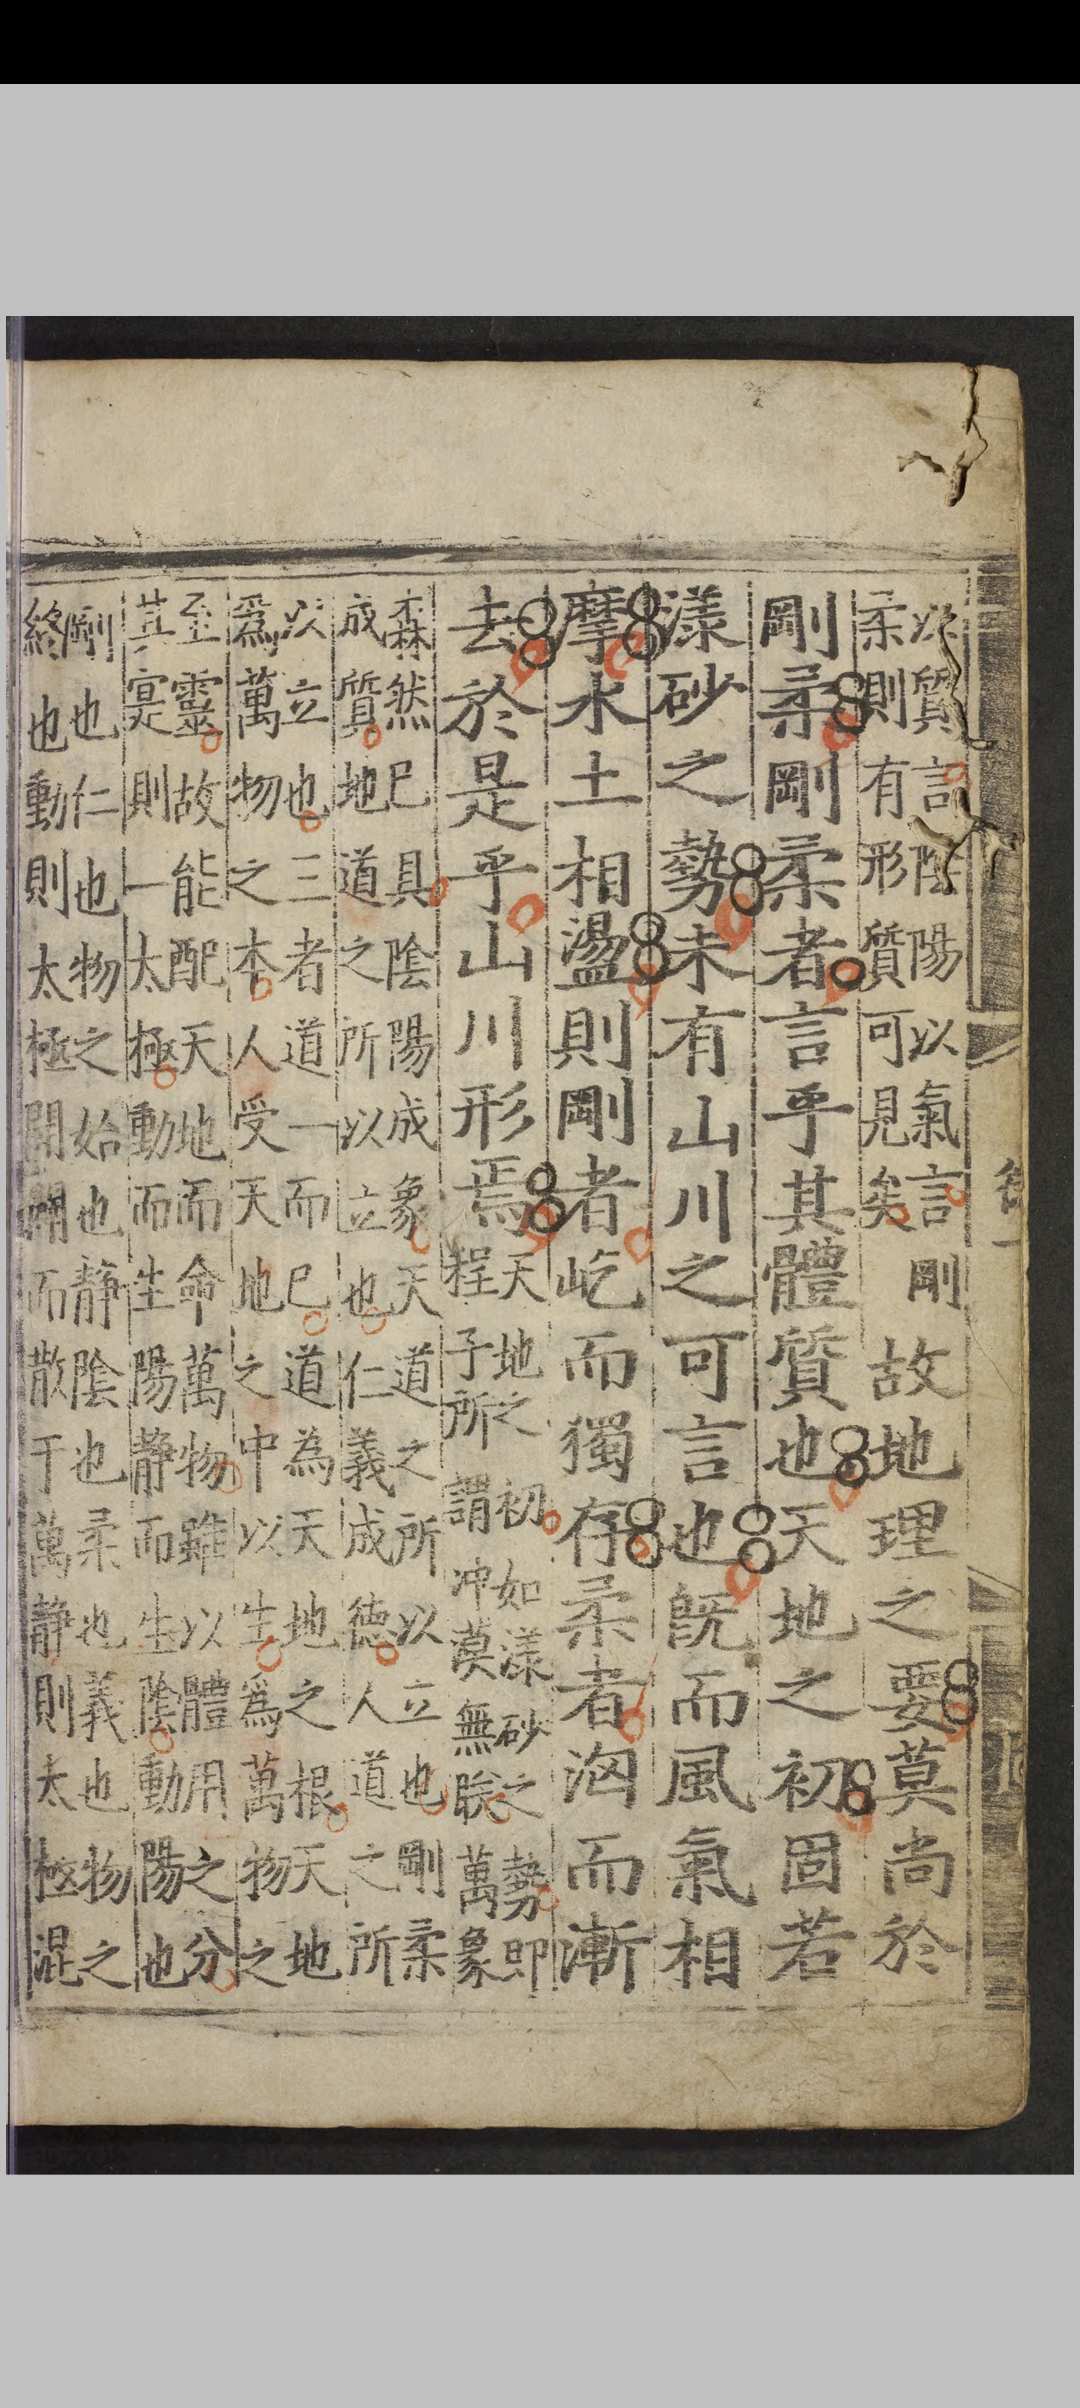 以質言陰陽以氣言剛
柔則有形質可見矣
故地理之要莫尚於
剛柔剛柔者言乎其體質也天地之初固若
漾砂之勢未有山川之可言也旣而風氣相
摩水土相盪則剛者屹而獨存柔者汹而漸
去於是乎山川形焉
天地之初如漾砂之勢即
程子所謂冲漠無眹萬象
森然已具陰陽成象天道之所以立也剛柔
成質地道之所以立也仁義成德人道之所
以立也三者道一而已道為天地之根天地
爲萬物之本人受天地之中以生爲萬物之
至靈故能配天地而命萬物雖以體用之分
其寔則一太極動而生陽静而生陰動陽也
剛也仁也物之始也静陰也柔也義也物之
終也動則太極開闢而散于萬静則太極混